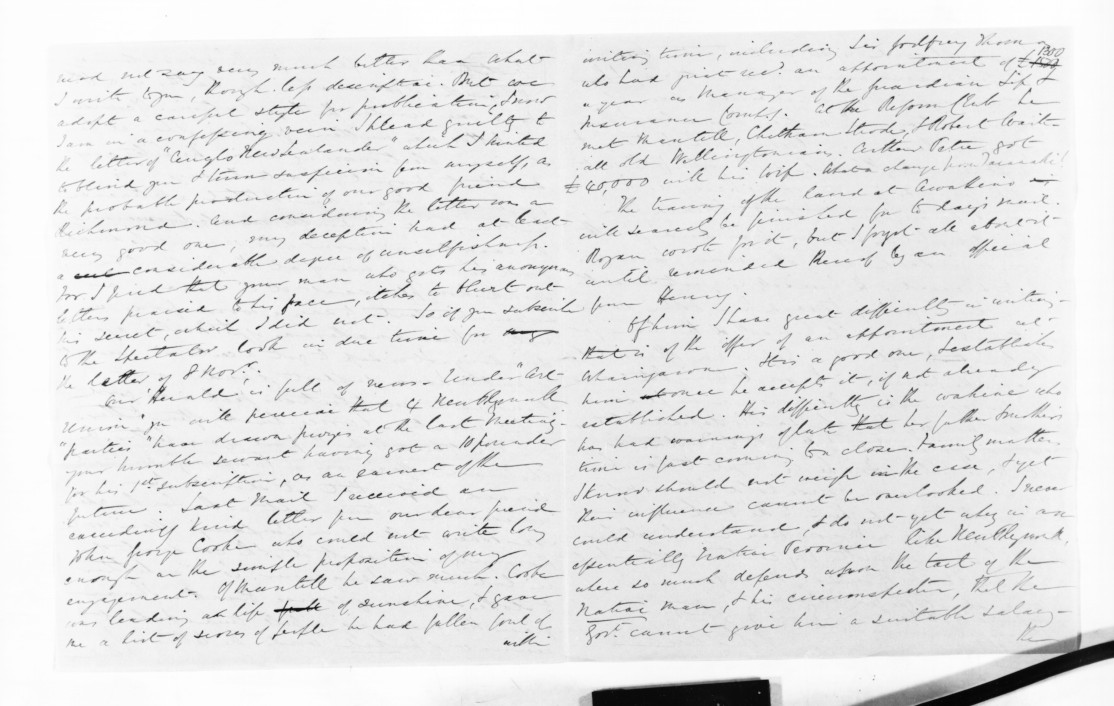 need not say very much better than what
I write to you, though less descriptive. But we
adopt a careful style for publication, & now
I am in a confessing vein I plead guilty to
the letter of "Anglo New Zealander" which I hinted
to blind you & turn suspicion from myself, as
the probable production of our good friend
Richmond. And considering the letter was a
very good one, my deception had at least
a considerable degree of unselfishness.
For I find that your man who gets his anonymous
letters praised to his face, itches to blurt out
his secret, which I did not. So if you subscribe
to the Spectator look in due time for
the letter of 8 Novr.
Our Herald is full of news - Under "Art-
Union" you will perceive that 4 New Plymouth
"parties" have drawn prizes at the last meeting -
your humble servant having got a 10 pounder
for his 1st subscription, as an earnest of the
future. Last Mail I received an
exceedingly kind letter from our dear friend
John George Cooke who could not write long
enough on the simple proposition of my
engagement. Of Mantell he saw much. Cooke
was leading a life of sunshine, & gave
me a list of scores of people he had fallen foul of
within
writing time, including Sir Godfrey Thomas
who had just recd. an appointment of £1300
a year as Manager of the Guardian Life &
Insurance Compy. At the Reform Club he
met Mantell, Cheltham Strode, & Robert Wait-
all old Wellingtonians. Arthur Petre got
£40,000 with his wife. What a change from Taranaki!
The tracing of the land at Awakino
will scarcely be finished for to day's mail.
Rogan wrote for it, but I forgot all about it
until reminded thereof by an official
from Henry.
Of him I have great difficulty in writing -
that is of the offer of an appointment at
Whaingaroa. It is a good one, & establishes
him once he accepts it, if not already
established. His difficulty is the wahine who
has had warnings of late that her father Smith's
time is fast coming to a close. Family matters
I know should not weigh in the case, & yet
their influence cannot be overlooked. I never
could understand, & do not yet why in an
essentially Native Province like New Plymouth,
where so much depends upon the tact of the
Native man, & his circumspection, that the
Govt. cannot give him a suitable salary -